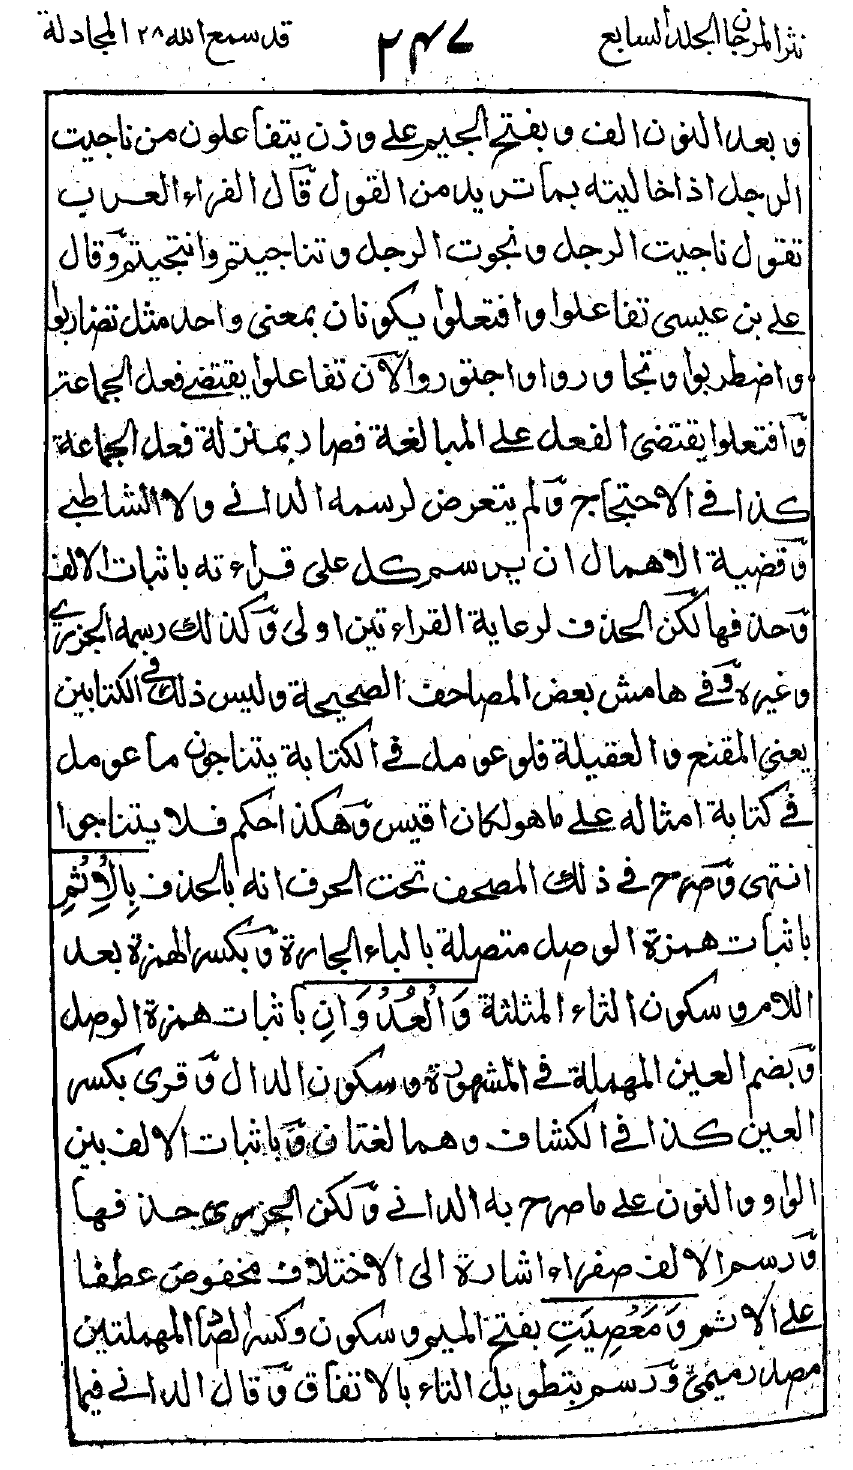 نثر المرجان الجلد السابع ٢٤٧ قد سمع الله ٢٨ المجادلة
وبعد النون الف وبفتح الجيم على وزن يتفاعلون من ناجيت
الرجل اذا خاليته بما تريد من القول قال الفراء العرب
تقول ناجيت الرجل ونجوت الرجل وتناجيتم وانتجيتم وقال
على بن عيسى تفاعلوا وافتعلوا يكونان بمعنى واحد مثل تضاربوا
واضطربوا وتجاوروا واجتوروا لان تفاعلوا يقتضى فعل الجماعة
وافتعلوا يقتضى الفعل على المبالغة فصار بمنزلة فعل الجماعة
كذا فى الاحتجاج ولم يتعرض لرسمه الدانى ولا الشاطبى
وقضية الاهمال ان يرسم كل على قراءته باثبات الالف
وحذفها لكن الحذف لرعاية القراءتين اولى وكذلك رسمه الجزرى
وغيره وفى هامش بعض المصاحف الصحيحة وليس ذلك فى الكتابين
يعنى المقنع والعقيلة فلو عومل فى الكتابة يتناجون ما عومل
فى كتابة امثاله على ما هو لكان اقيس وهكذا حكم فلا يتناجوا
انتهى وصرح فى ذلك المصحف تحت الحرف انه بالحذف بِالْاِثْمِ
باثبات همزة الوصل متصلة بالباء الجارة وبكسر الهمزة بعد
اللام وسكون الثاء المثلثة وَالْعُدْوَانِ باثبات همزة الوصل
وبضم العين المهملة فى المشهورة وسكون الدال وقرى بكسر
العين كذا فى الكشاف وهما لغتان وباثبات الالف بين
الواو والنون على ما صرح به الدانى ولكن الجزرى حذفها
ورسم الالف صفراء اشارة الى الاختلاف مخفوض عطفا
على الاثم وَمَعْصِيَتِ بفتح الميم وسكون وكسر الصاد المهملتين
مصدر ميمى ورسم بتطويل التاء بالاتفاق وقال الدانى فيما